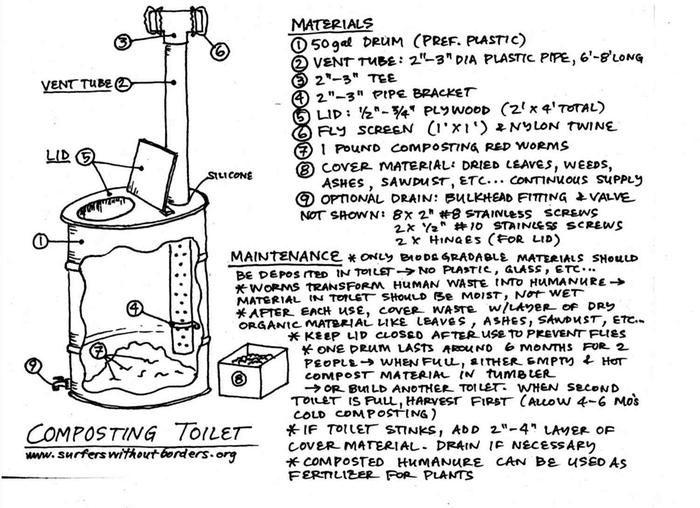 MATERIALS
① 50gal DRUM (PREF. PLASTIC)
② VENT TUBE: 2"-3" DIA PLASTIC PIPE, 6'-8' LONG
③ 2"-3" TEE
④ 2"-3" PIPE BRACKET
⑤ LID: ½"-¾" PLYWOOD (2' X 4' TOTAL)
⑥ FLY SCREEN (1' X 1') & NYLON TWINE
⑦ 1 POUND COMPOSTING RED WORMS
⑧ COVER MATERIAL: DRIED LEAVES, WEEDS,
ASHES, SAWDUST, ETC... CONTINUOUS SUPPLY
⑨ OPTIONAL DRAIN: BULKHEAD FITTING & VALVE
NOT SHOWN: 8X 2" #8 STAINLESS SCREWS
2X ½" #10 STAINLESS SCREWS
2 X HINGES (FOR LID)
MAINTENANCE * ONLY BIODEGRADABLE MATERIALS SHOULD
BE DEPOSITED IN TOILET → NO PLASTIC, GLASS, ETC...
* WORMS TRANSFORM HUMAN WASTE INTO HUMANURE →
MATERIAL IN TOILET SHOULD BE MOIST, NOT WET
* AFTER EACH USE, COVER WASTE W/LAYER OF DRY
ORGANIC MATERIAL LIKE LEAVES, ASHES, SAWDUST, ETC...
* KEEP LID CLOSED AFTER USE TO PREVENT FLIES
* ONE DRUM LASTS AROUND 6 MONTHS FOR 2
PEOPLE → WHEN FULL, EITHER EMPTY & HOT
COMPOST MATERIAL IN TUMBLER
→ OR BUILD ANOTHER TOILET. WHEN SECOND
TOILET IS FULL, HARVEST FIRST (ALLOW 4-6 MO'S
COLD COMPOSTING)
* IF TOILET STINKS, ADD 2"-4" LAYER OF
COVER MATERIAL. DRAIN IF NECESSARY
* COMPOSTED HUMANURE CAN BE USED AS
FERTILIZER FOR PLANTS
③
⑥
VENT TUBE ②
LID ⑤
SILICONE
①
④
⑦
⑨
⑧
COMPOSTING TOILET
www.surferswithoutborders.org